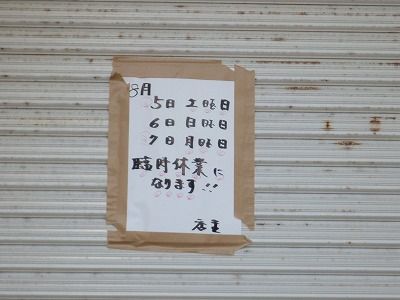 8月
5日 土曜日
6日 日曜日
7日 月曜日
臨時休業に
なります!!
店主